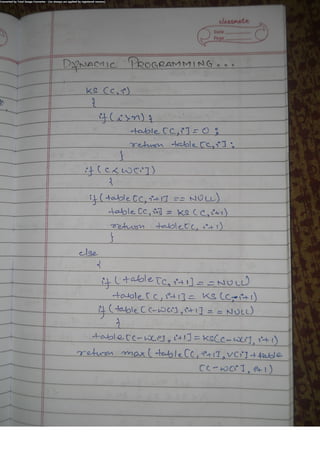 Converted by Total Image Converter - (no design are applied by registered version)
classmate
Date
Page
DYNAMIC PROGRAMMING...
KS (C, i)
{
if (i>n) {
table [C,i] = 0 ;
return table [C,i] ;
}
if (C < W[i])
{
if (table [C, i+1] == NULL)
table [C, i+1] = KS (C, i+1)
return table [C, i+1)
}
else
{
if ( table [C, i+1] == NULL)
table [C, i+1] = KS (C, i+1)
if (table [C-W[i], i+1] == NULL)
{
table [C-W[i], i+1] = KS(C-W[i], i+1)
return max (table [C, i+1], V[i] + table
[C-W[i], i+1)